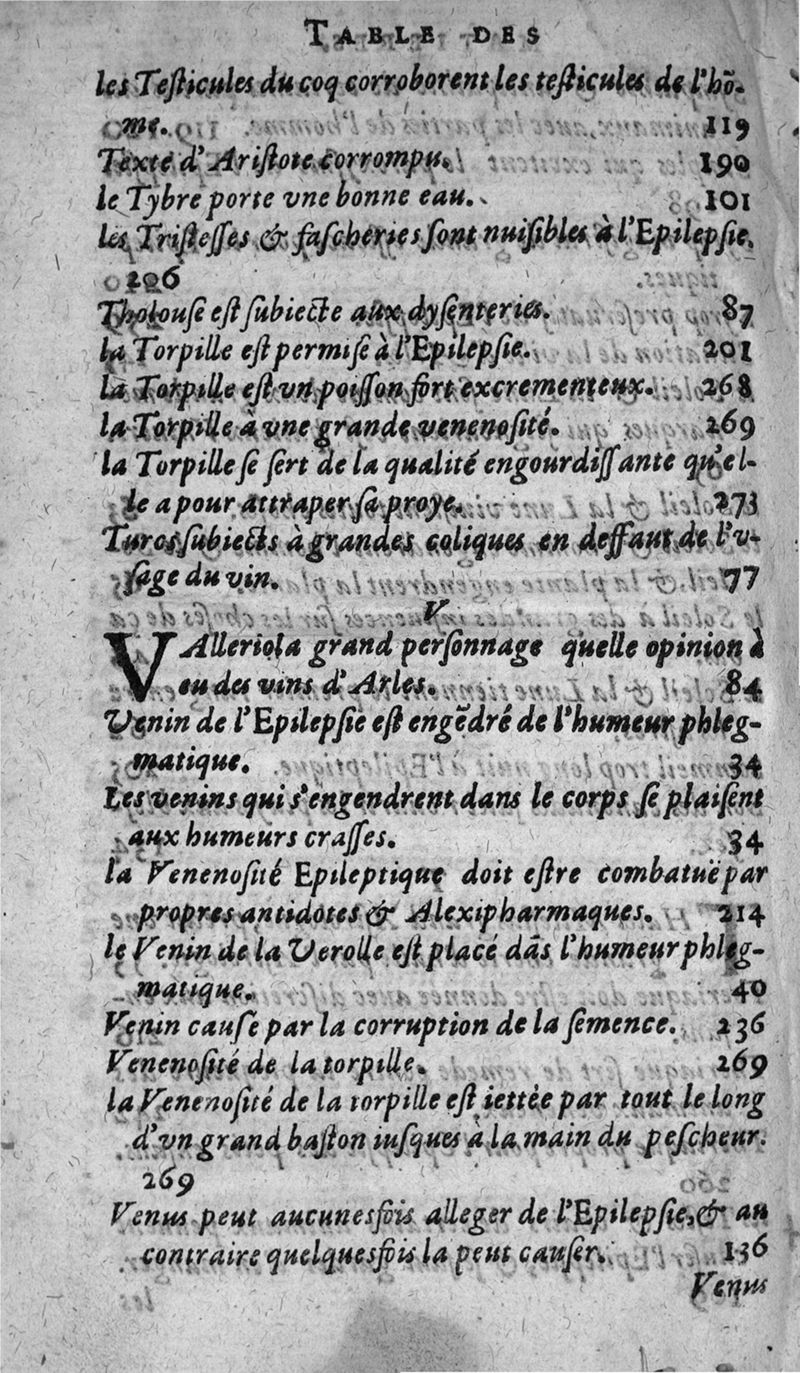 TABLE DES
les Testicules du coq corroborent les testicules de l'hō-
me. 119
Texte d'Aristote corrompu. 190
le Tybre porte vne bonne eau. 101
les Tristesses & fascheries sont nuisibles à l'Epilepsie.
206
Tholouse est subiecte aux dysenteries. 87
la Torpille est permise à l'Epilepsie. 201
la Torpille est vn poisson fort excrementeux. 268
la Torpille à vne grande venenosité. 269
la Torpille se sert de la qualité engourdissante qu'el-
le a pour attraper sa proye. 273
Turcs subiects à grandes coliques en deffaut de l'v-
sage du vin. 77
V
VAlleriola grand personnage quelle opinion à
eu des vins d'Arles. 84
Venin de l'Epilepsie est engēdré de l'humeur phleg-
matique. 34
Les venins qui s'engendrent dans le corps se plaisent
aux humeurs crasses. 34
la Venenosité Epileptique doit estre combatuë par
propres antidotes & Alexipharmaques. 214
le Venin de la Verolle est placé dās l'humeur phleg-
matique. 40
Venin cause par la corruption de la semence. 236
Venenosité de la torpille. 269
la Venenosité de la torpille est iettée par tout le long
d'vn grand baston iusques à la main du pescheur.
269
Venus peut aucunesfois alleger de l'Epilepsie, & au
contraire quelquesfois la peut causer. 136
Venus